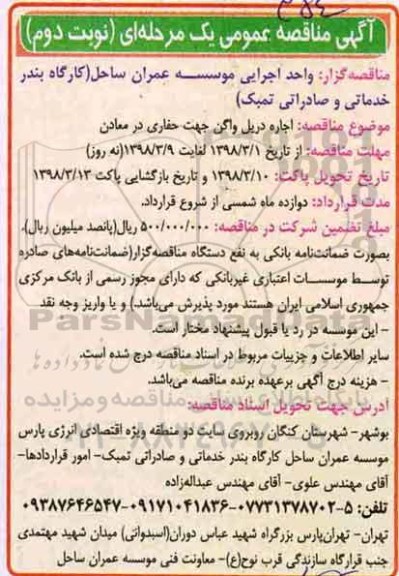 آگهی مناقصه عمومی یک مرحله‌ای (نوبت دوم)
مناقصه‌گزار: واحد اجرایی موسسه عمران ساحل(کارگاه بندر
خدماتی و صادراتی تمبک)
موضوع مناقصه: اجاره دریل واگن جهت حفاری در معادن
مهلت مناقصه: از تاریخ ۱۳۹۸/۳/۱ لغایت ۱۳۹۸/۳/۹(نه روز)
تاریخ تحویل پاکت: ۱۳۹۸/۳/۱۰ و تاریخ بازگشایی پاکت ۱۳۹۸/۳/۱۳
مدت قرارداد: دوازده ماه شمسی از شروع قرارداد.
مبلغ تضمین شرکت در مناقصه: ۵۰۰/۰۰۰/۰۰۰ ریال(پانصد میلیون ریال).
بصورت ضمانت‌نامه بانکی به نفع دستگاه مناقصه‌گزار(ضمانت‌نامه‌های صادره
توسط موسسات اعتباری غیربانکی که دارای مجوز رسمی از بانک مرکزی
جمهوری اسلامی ایران هستند مورد پذیرش می‌باشد.) و یا واریز وجه نقد
- این موسسه در رد یا قبول پیشنهاد مختار است.
سایر اطلاعات و جزییات مربوط در اسناد مناقصه درج شده است.
- هزینه درج آگهی برعهده برنده مناقصه می‌باشد.
آدرس جهت تحویل اسناد مناقصه:
بوشهر- شهرستان کنگان روبروی سایت دو منطقه ویژه اقتصادی انرژی پارس
موسسه عمران ساحل کارگاه بندر خدماتی و صادراتی تمبک- امور قراردادها-
آقای مهندس علوی- آقای مهندس عبداله‌زاده
تلفن: ۵-۰۷۷۳۱۳۷۸۷۰۲-۰۹۱۷۱۰۴۱۸۳۶-۰۹۳۸۷۶۴۶۵۴۷
تهران- تهران‌پارس بزرگراه شهید عباس دوران(اسبدوانی) میدان شهید مهتمدی
جنب قرارگاه سازندگی قرب نوح(ع)- معاونت فنی موسسه عمران ساحل
ParsNamadData